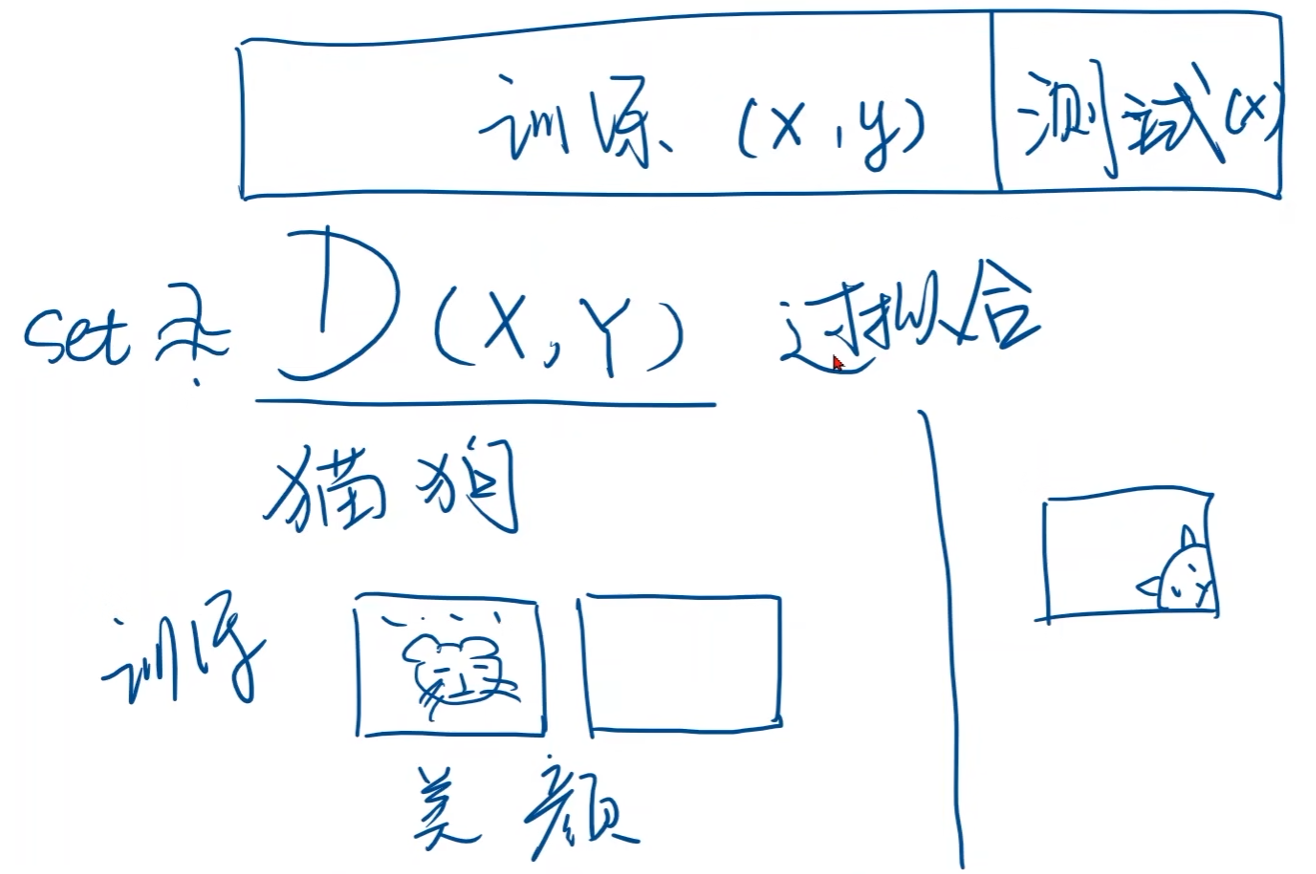 训练 (x,y) 测试(x)
set D(X,Y) 过拟合
猫狗
训练
美颜